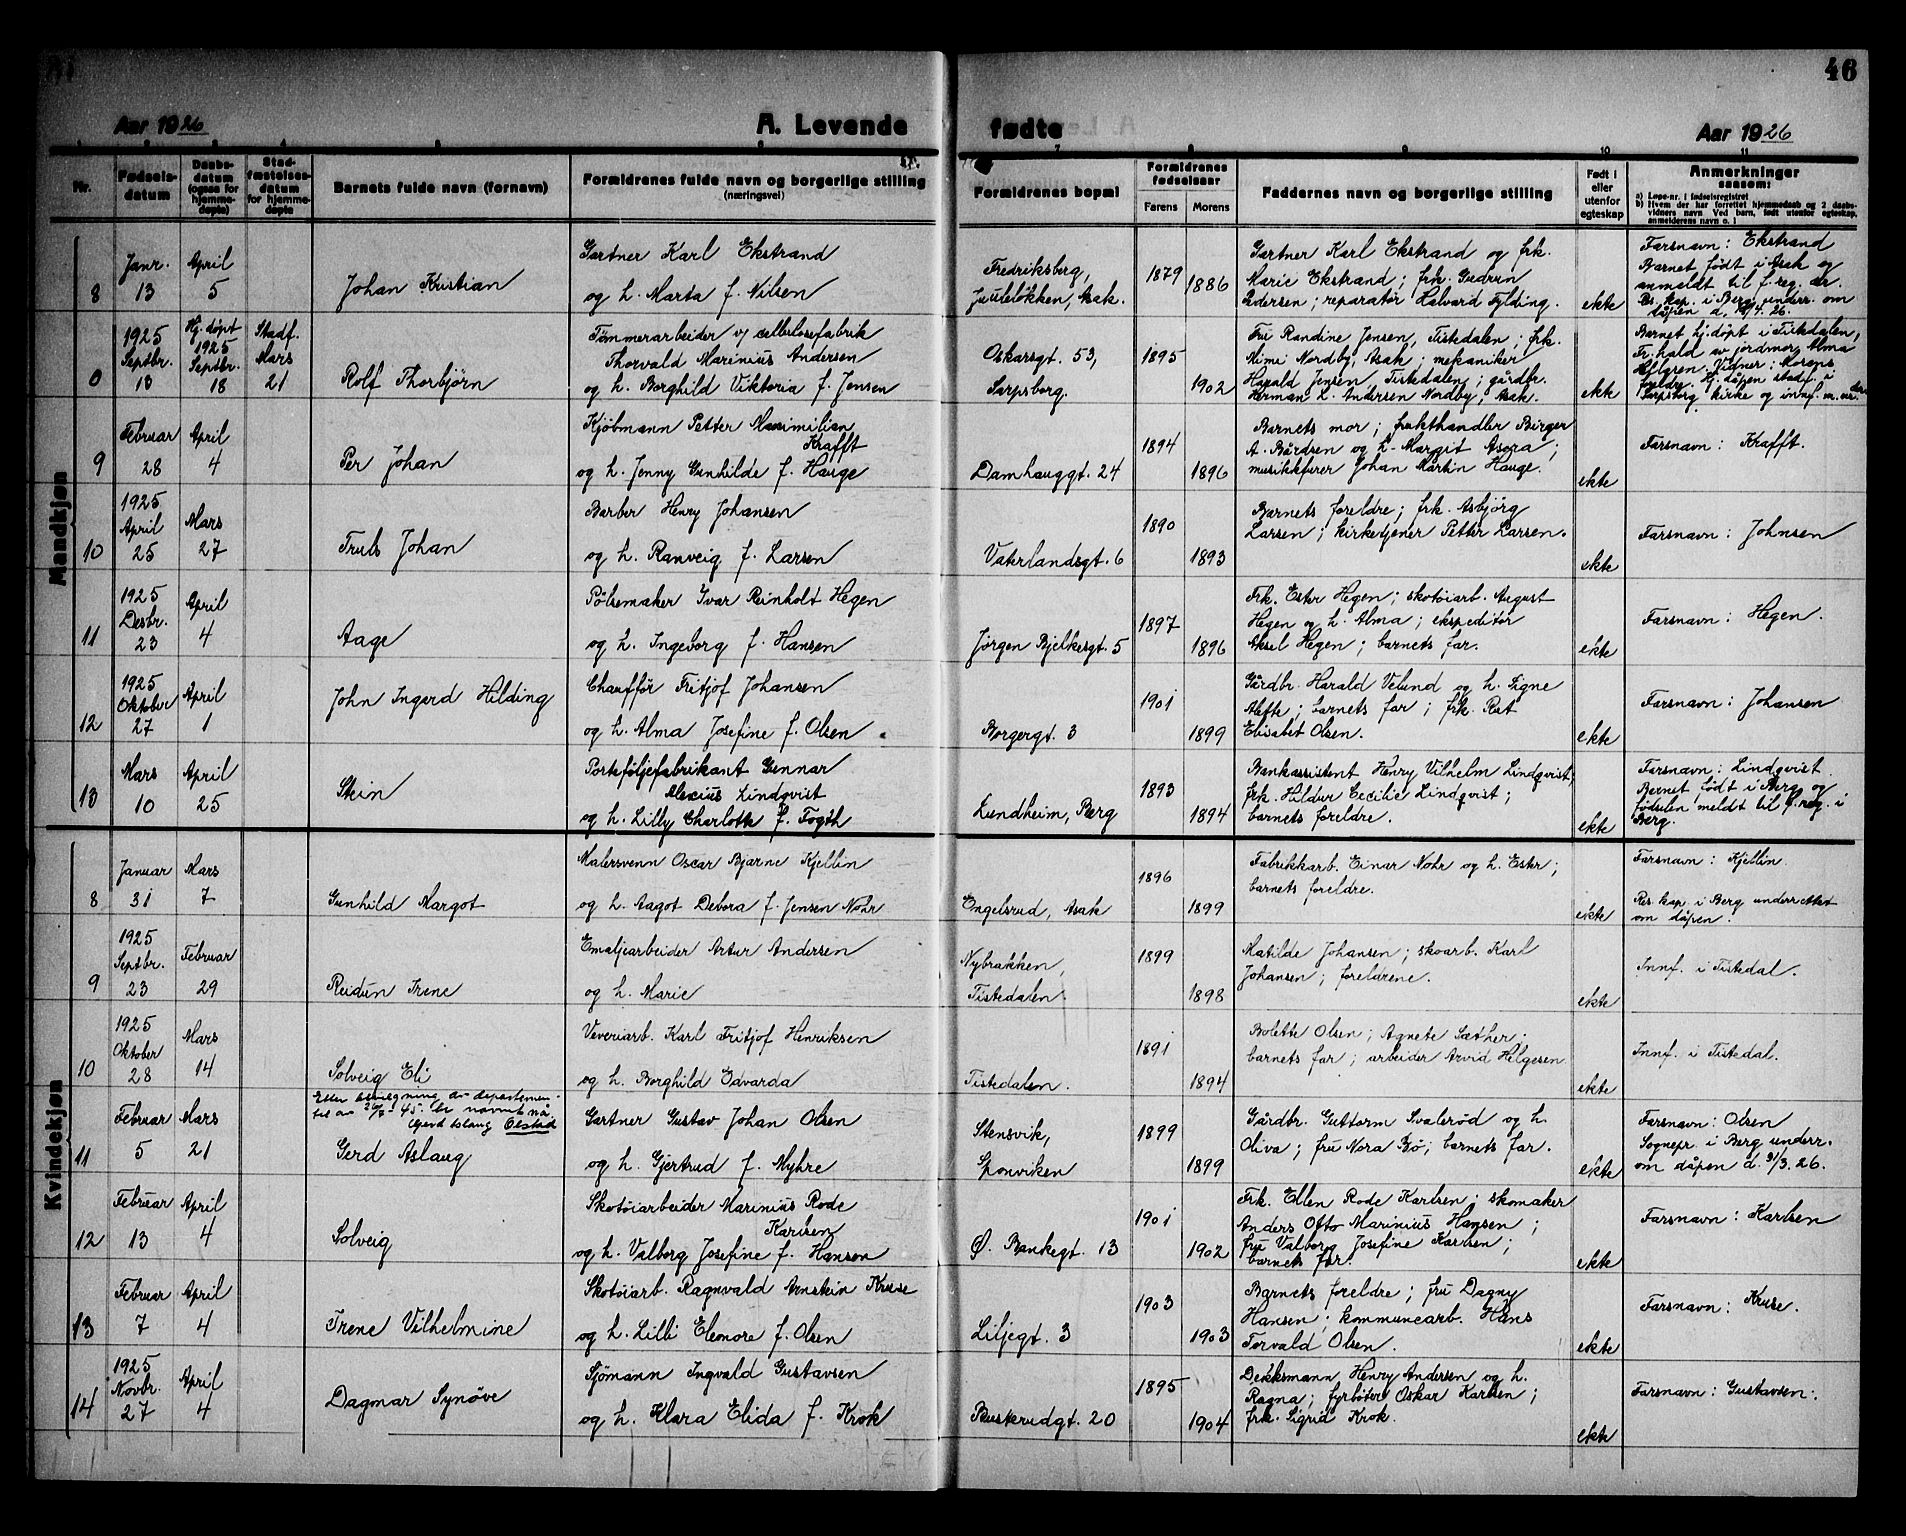 46
Aar 1926
A. Levende
fødte
Aar 1926
Nr.
Fødsels-
datum
Daabs-
datum
(ogsaa for
hjemme-
døpte)
Stad-
fæstelses-
datum
for hjemme-
døpte
Barnets fulde navn (fornavn)
Forældrenes fulde navn og borgerlige stilling
(næringsvei)
Forældrenes bopæl
Forældrenes
fødselsaar
Farens
Morens
Faddernes navn og borgerlige stilling
Født i
eller
utenfor
egteskap
Anmerkninger
saasom:
a) Løpe-nr. i fødselsregistret
b) Hvem der har forrettet hjemmedaab og 2 daabs-
vidners navn Ved barn, født utenfor egteskap,
anmelderens navn o. l
Mandkjøn
8
Janr.
13
April
5
Johan Kristian
Gartner Karl Ekstrand
og h. Marta f. Nilsen
Fredriksberg,
Juuleløkken, Asak.
1879
1886
Gartner Karl Ekstrand og frk.
Marie Ekstrand; frk. Gudrun
Pedersen; reparatør Halvard Fylding.
ekte
Farsnavn: Ekstrand
Barnet født i Asak og
anmeldt til f. reg. der.
Res. kap. i Berg underr. om
dåpen d. 12/4. 26.
0
1925
Septbr.
18
Hj. døpt
1925
Septbr.
18
Stadf.
Mars
21
Rolf Thorbjörn
Tömmerarbeider v/ cellulosefabrik
Thorvald Marinius Andersen
og h. Borghild Viktoria f. Jensen
Oskarsgt. 53,
Sarpsborg.
1895
1902
Fru Randine Jensen, Tistedalen; frk.
Mimi Nordby, Asak; mekaniker
Harald Jensen, Tistedalen; gårdbr.
Herman L. Andersen Nordby, Asak.
ekte
Barnet hj. døpt i Tistedalen,
Fr.hald av jordmor Alma
Helgsen. Vidner: Morens
foreldre. Hj. dåpen stadf. i
Sarpsborg kirke og innf. m. nr. der
9
Februar
28
April
4
Per Johan
Kjöbmann Petter Maximilian
Krafft
og h. Jenny Gunhilde f. Hauge
Damhauggt. 24
1894
1896
Barnets mor; frukthandler Birger
A. Bårdsen og h. Margit Asora;
musikkfurer Johan Martin Hauge.
ekte
Farsnavn: Krafft.
10
1925
April
25
Mars
27
Truls Johan
Barber Henry Johansen
og h. Ranveig f. Larsen
Vaterlandsgt. 6
1890
1893
Barnets foreldre; frk. Asbjörg
Larsen; kirketjener Petter Larsen.
ekte
Farsnavn: Johnsen
11
1925
Desbr.
23
April
4
Aage
Pölsemaker Ivar Reinholt Hegen
og h. Ingeborg f. Hansen
Jörgen Bjelkesgt. 5
1897
1896
Frk. Ester Hegen; skotöiarb. August
Hegen og h. Alma; ekspeditör
Aksel Hegen; barnets far.
ekte
Farsnavn: Hegen.
12
1925
Oktober
27
April
1
John Ingerd Hilding
Chaufför Fritjof Johansen
og h. Alma Josefine f. Olsen.
Borgergt. 3
1901
1899
Gårdbr. Harald Velund og h. Signe
Alefte; barnets far; frk. Rut
Elisabet Olsen.
ekte
Farsnavn: Johansen
13
Mars
10
April
25
Stein
Porteföljefabrikant Gunnar
Alexius Lindqvist
og h. Lilly Charlotte f. Fogth
Lundheim, Berg
1893
1894
Bankassistent Henry Vilhelm Lindqvist;
frk. Hildur Cecilie Lindqvist;
barnets foreldre.
ekte
Farsnavn: Lindqvist.
Barnet født i Berg og
fødselen meldt til f. reg. i
Berg.
Kvindekjøn
8
Januar
31
Mars
7
Gunhild Margot
Malersvenn Oscar Bjarne Kjellin
og h. Aagot Debora f. Jensen Nohr
Engelsrud, Asak
1896
1899
Fabrikkarb. Einar Nohr og h. Ester;
barnets foreldre.
ekte
Farsnavn: Kjellin.
Res. kap. i Berg underrettet
om dåpen.
9
1925
Septbr.
23
Februar
29
Reidun Irene
Emaljearbeider Artur Andersen
og h. Marie
Nybrakken,
Tistedalen.
1899
1898
Matilde Johansen; skoarb. Karl
Johansen; foreldrene.
ekte
Innf. i Tistedal.
10
1925
Oktober
28
Mars
14
Solveig Eli
Veveriarb. Karl Fritjof Henriksen
og h. Borghild Edvarda
Tistedalen.
1891
1894
Bolette Olsen; Agnete Sæther;
barnets far; arbeider Arvid Helgesen.
ekte
Innf. i Tistedal.
11
Februar
5
Mars
21
Etter bevilgning av departemen-
tet av 26/7-45. er navnet nå
Gerd Aslaug Olstad
Gerd Aslaug
Gartner Gustav Johan Olsen
og h. Gjertrud f. Myhre
Stensvik,
Sponviken
1899
1899
Gårdbr. Guttorm Svaleröd og h.
Oliva; fru Nora Bö; barnets far.
ekte
Farsnavn: Olsen
Sognepr. i Berg underr.
om dåpen d. 31/3. 26.
12
Februar
13
April
4
Solveig
Skotöiarbeider Marinius Rode
Karlsen
og h. Valborg Josefine f. Hansen
Ø. Bankegt. 13
1901
1902
Frk. Ellen Rode Karlsen; skomaker
Anders Otto Marinius Hansen;
fru Valborg Josefine Karlsen;
barnets far.
ekte
Farsnavn: Karlsen
13
Februar
7
April
4
Irene Vilhelmine
Skotöiarb. Ragnvald Arnstein Kruse
og h. Lilli Eleonore f. Olsen
Liljegt. 3
1903
1903
Barnets foreldre; fru Dagny
Hansen; kommunearb. Hans
Torvald Olsen.
ekte
Farsnavn: Kruse.
14
1925
Novbr.
27
April
4
Dagmar Synöve
Sjömann Ingvald Gustavsen
og h. Klara Elida f. Krok
Buskerudgt. 20
1895
1904
Dekksmann Henry Andersen og h.
Ragna; fyrböter Oskar Karlsen;
frk. Sigrid Krok.
ekte
Farsnavn: Gustavsen.